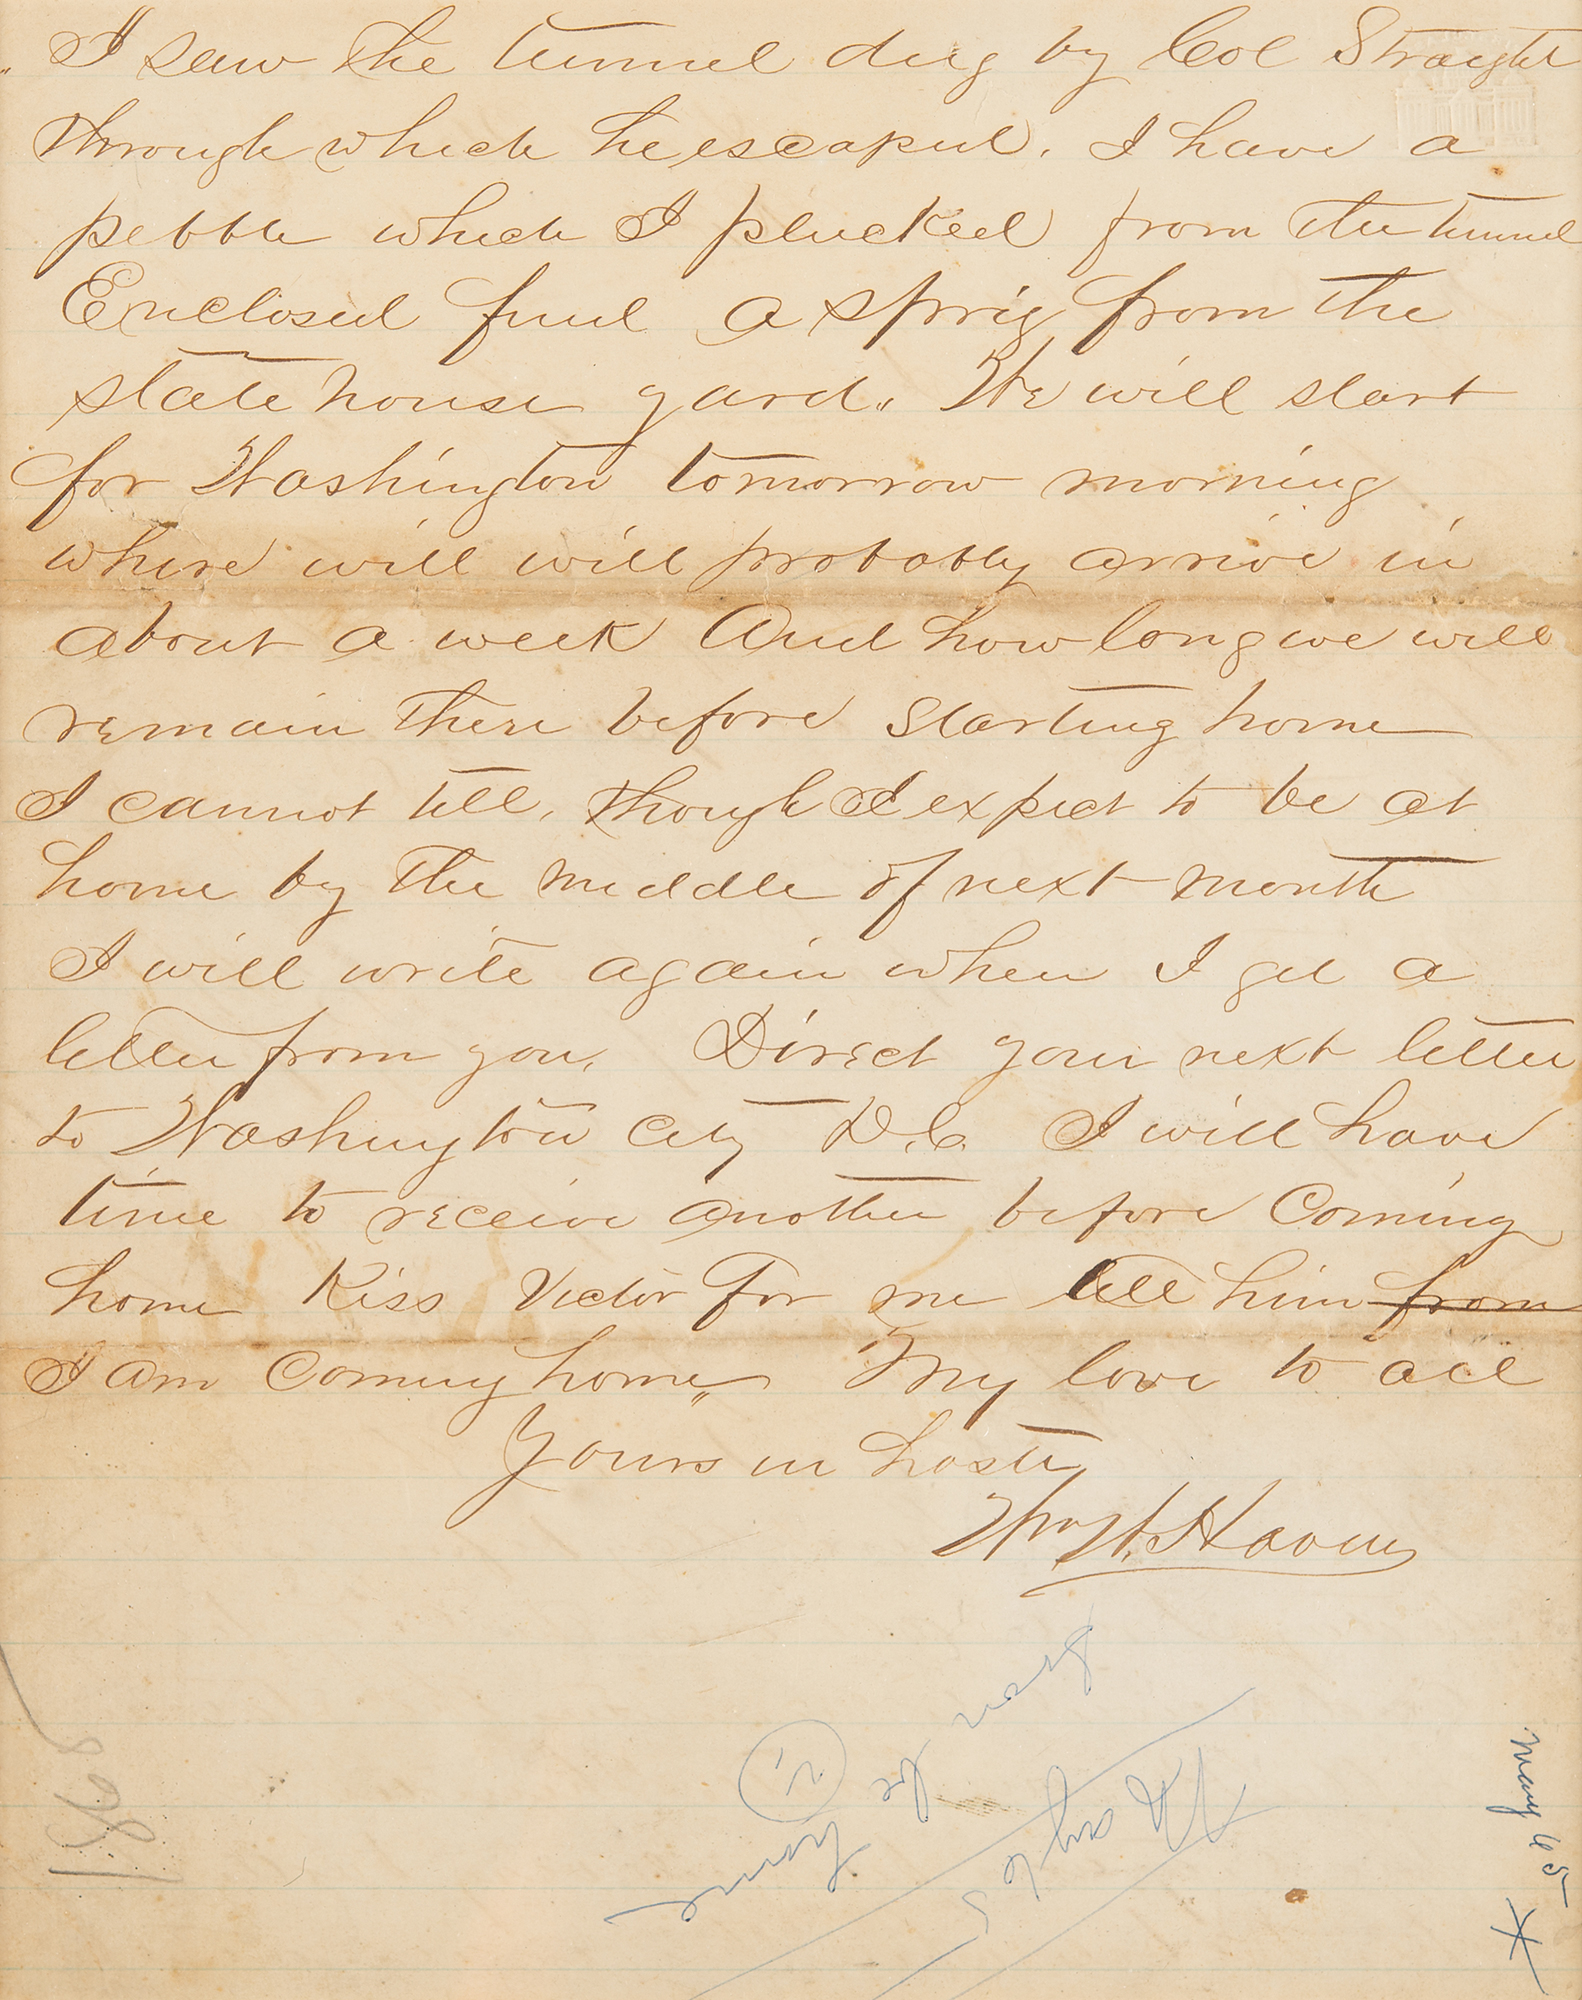 I saw the tunnel dug by Col Straight
through which he escaped. I have a
pebble which I plucked from the tunnel
Enclosed find a sprig from the
state house yard. We will start
for Washington tomorrow morning
where will will probably arrive in
about a week And how long we will
remain there before starting home
I cannot tell, though I expect to be at
home by the middle of next month
I will write again when I get a
letter from you. Direct your next letter
to Washington City D.C. I will have
time to receive another before Coming
home Kiss Victor for me tell him from
I am Coming home. My love to all
Yours in haste
Wm H. Haven
May 65